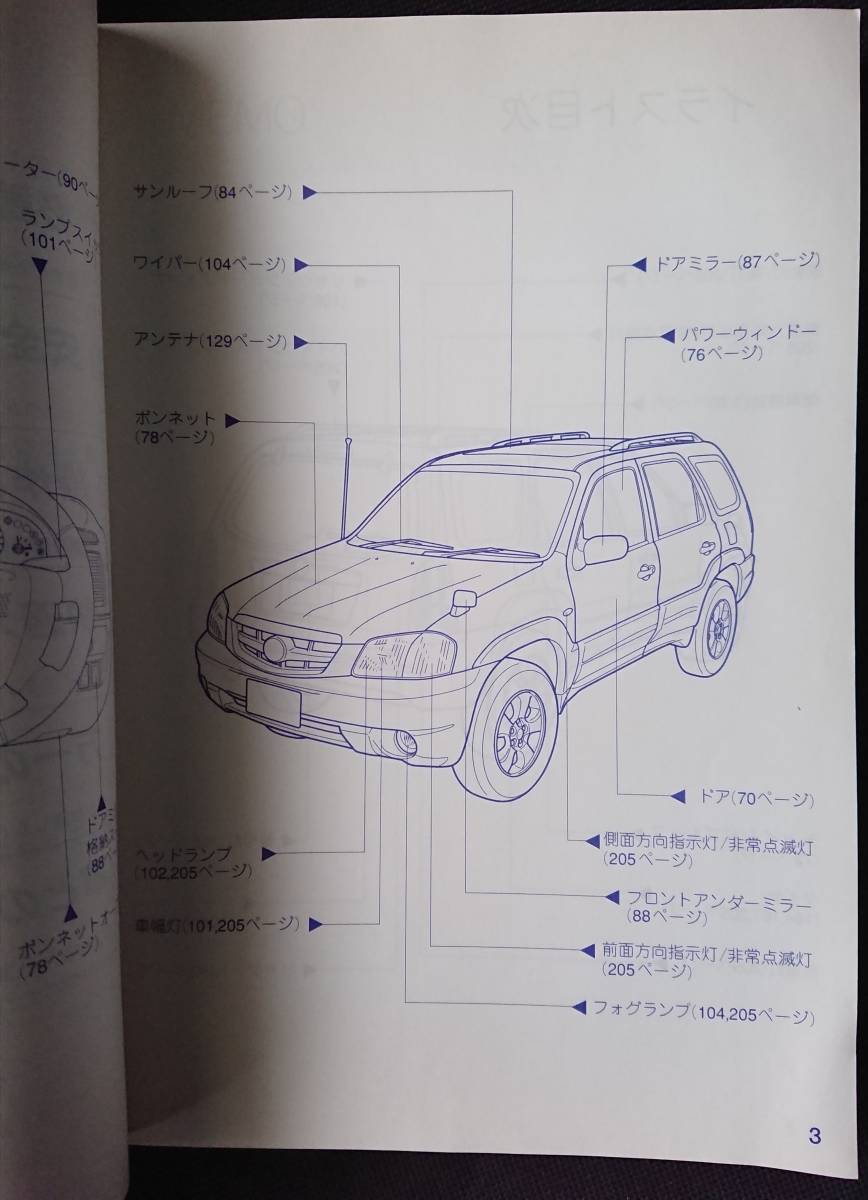 ーター(90ペー
ランプスイ
(101ページ
ドアミ
格納ス
(88ペー
ボンネットオー
(78ページ)
サンルーフ(84ページ)
ワイパー(104ページ)
アンテナ(129ページ)
ボンネット
(78ページ)
ドアミラー(87ページ)
パワーウィンドー
(76ページ)
ドア(70ページ)
側面方向指示灯/非常点滅灯
(205ページ)
フロントアンダーミラー
(88ページ)
前面方向指示灯/非常点滅灯
(205ページ)
フォグランプ(104,205ページ)
ヘッドランプ
(102,205ページ)
車幅灯(101,205ページ)
イラスト目次
3